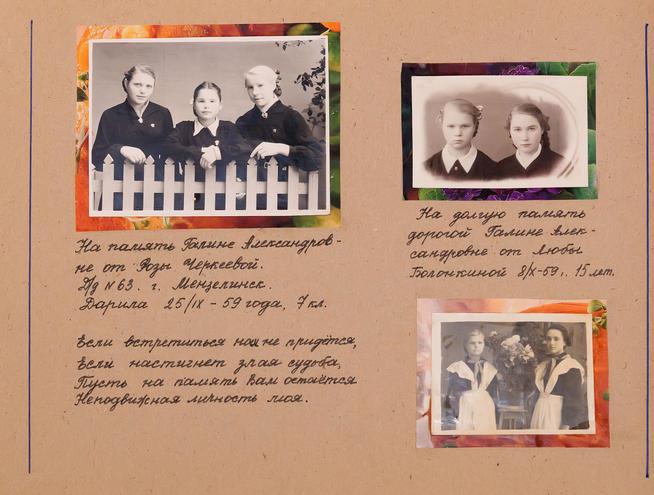 На память Галине Александров-
не от Розы Черкеевой.
Д/д №63. г. Мензелинск.
Дарила 25/IX – 59 года, 7 кл.
Если встретиться нам не придётся,
Если настигнет злая судьба,
Пусть на память Вам остаётся
Неподвижная личность моя.
На долгую память
дорогой Галине Алек-
сандровне от Любы
Болонкиной 8/X-59г. 15 лет.